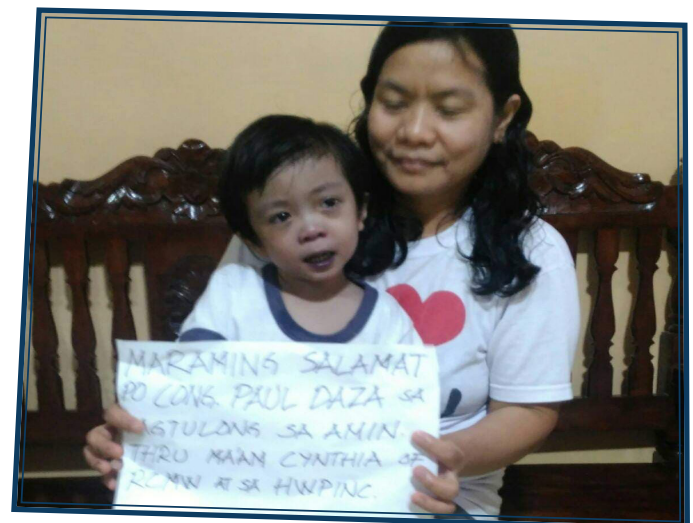 MARAMING SALAMAT
PO CONG. PAUL DAZA SA
PAGTULONG SA AMIN.
THRU MA'AM CYNTHIA OF
RCMW AT SA HWPINC.